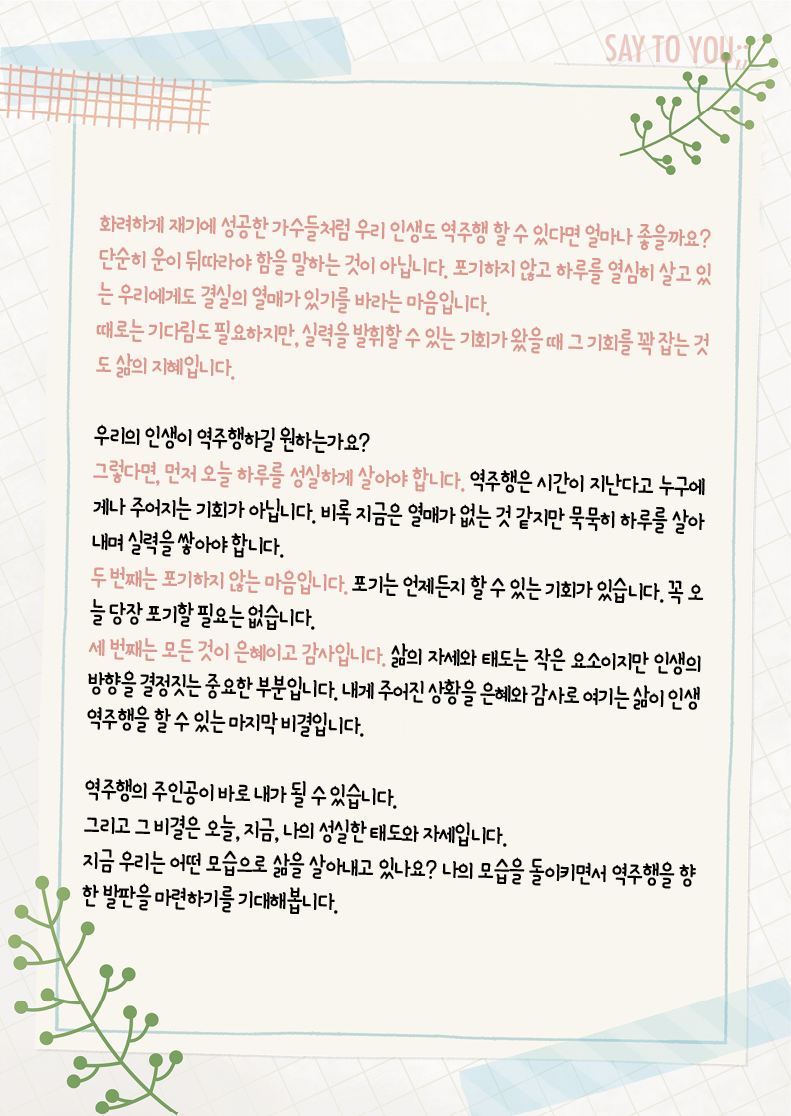 SAY TO YOU;;
화려하게 재기에 성공한 가수들처럼 우리 인생도 역주행 할 수 있다면 얼마나 좋을까요?
단순히 운이 뒤따라야 함을 말하는 것이 아닙니다. 포기하지 않고 하루를 열심히 살고 있
는 우리에게도 결실의 열매가 있기를 바라는 마음입니다.
때로는 기다림도 필요하지만, 실력을 발휘할 수 있는 기회가 왔을 때 그 기회를 꽉 잡는 것
도 삶의 지혜입니다.
우리의 인생이 역주행하길 원하는가요?
그렇다면, 먼저 오늘 하루를 성실하게 살아야 합니다. 역주행은 시간이 지난다고 누구에
게나 주어지는 기회가 아닙니다. 비록 지금은 열매가 없는 것 같지만 묵묵히 하루를 살아
내며 실력을 쌓아야 합니다.
두 번째는 포기하지 않는 마음입니다. 포기는 언제든지 할 수 있는 기회가 있습니다. 꼭 오
늘 당장 포기할 필요는 없습니다.
세 번째는 모든 것이 은혜이고 감사입니다. 삶의 자세와 태도는 작은 요소이지만 인생의
방향을 결정짓는 중요한 부분입니다. 내게 주어진 상황을 은혜와 감사로 여기는 삶이 인생
역주행을 할 수 있는 마지막 비결입니다.
역주행의 주인공이 바로 내가 될 수 있습니다.
그리고 그 비결은 오늘, 지금, 나의 성실한 태도와 자세입니다.
지금 우리는 어떤 모습으로 삶을 살아내고 있나요? 나의 모습을 돌이키면서 역주행을 향
한 발판을 마련하기를 기대해봅니다.